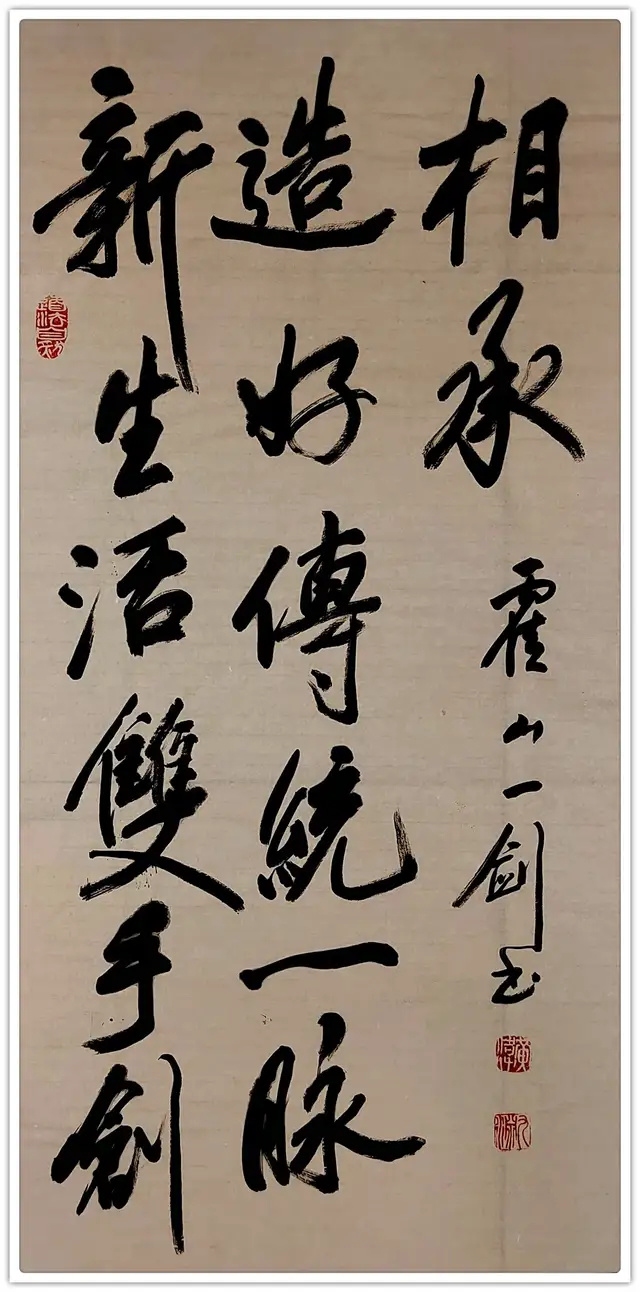 新生活雙手創
造好傳統一脉
相承
霍山一剑书